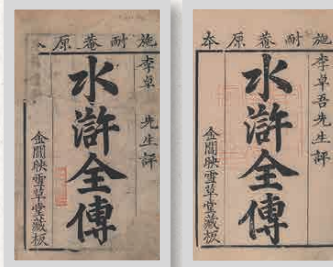 施耐菴原
李卓 先生評
水滸全傳
金閶映雪草堂藏板
施耐菴原本
李卓吾先生評
水滸全傳
金閶映雪草堂藏板